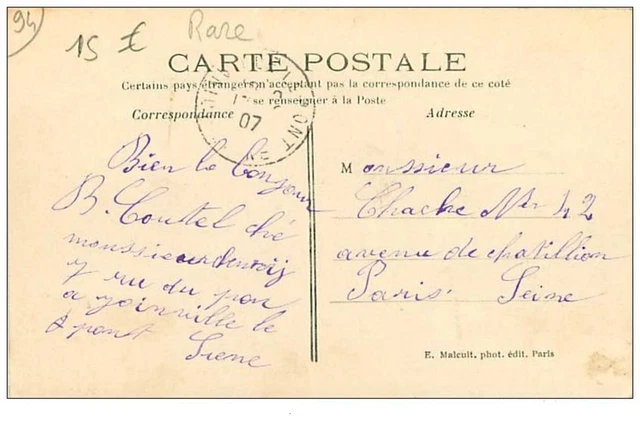 94
15 €
Rare
CARTE POSTALE
Certains pays étrangers n'acceptant pas la correspondance de ce coté
se renseigner à la Poste
Correspondance
Adresse
07
Bien le Bonjour
B. Couttel ché
moussieur
7 ru du pon
a joinville le
pont
Siene
Monssieur
Chache No 42
avenu de chatillion
Paris. Seine
E. Malcuit, phot. édit. Paris